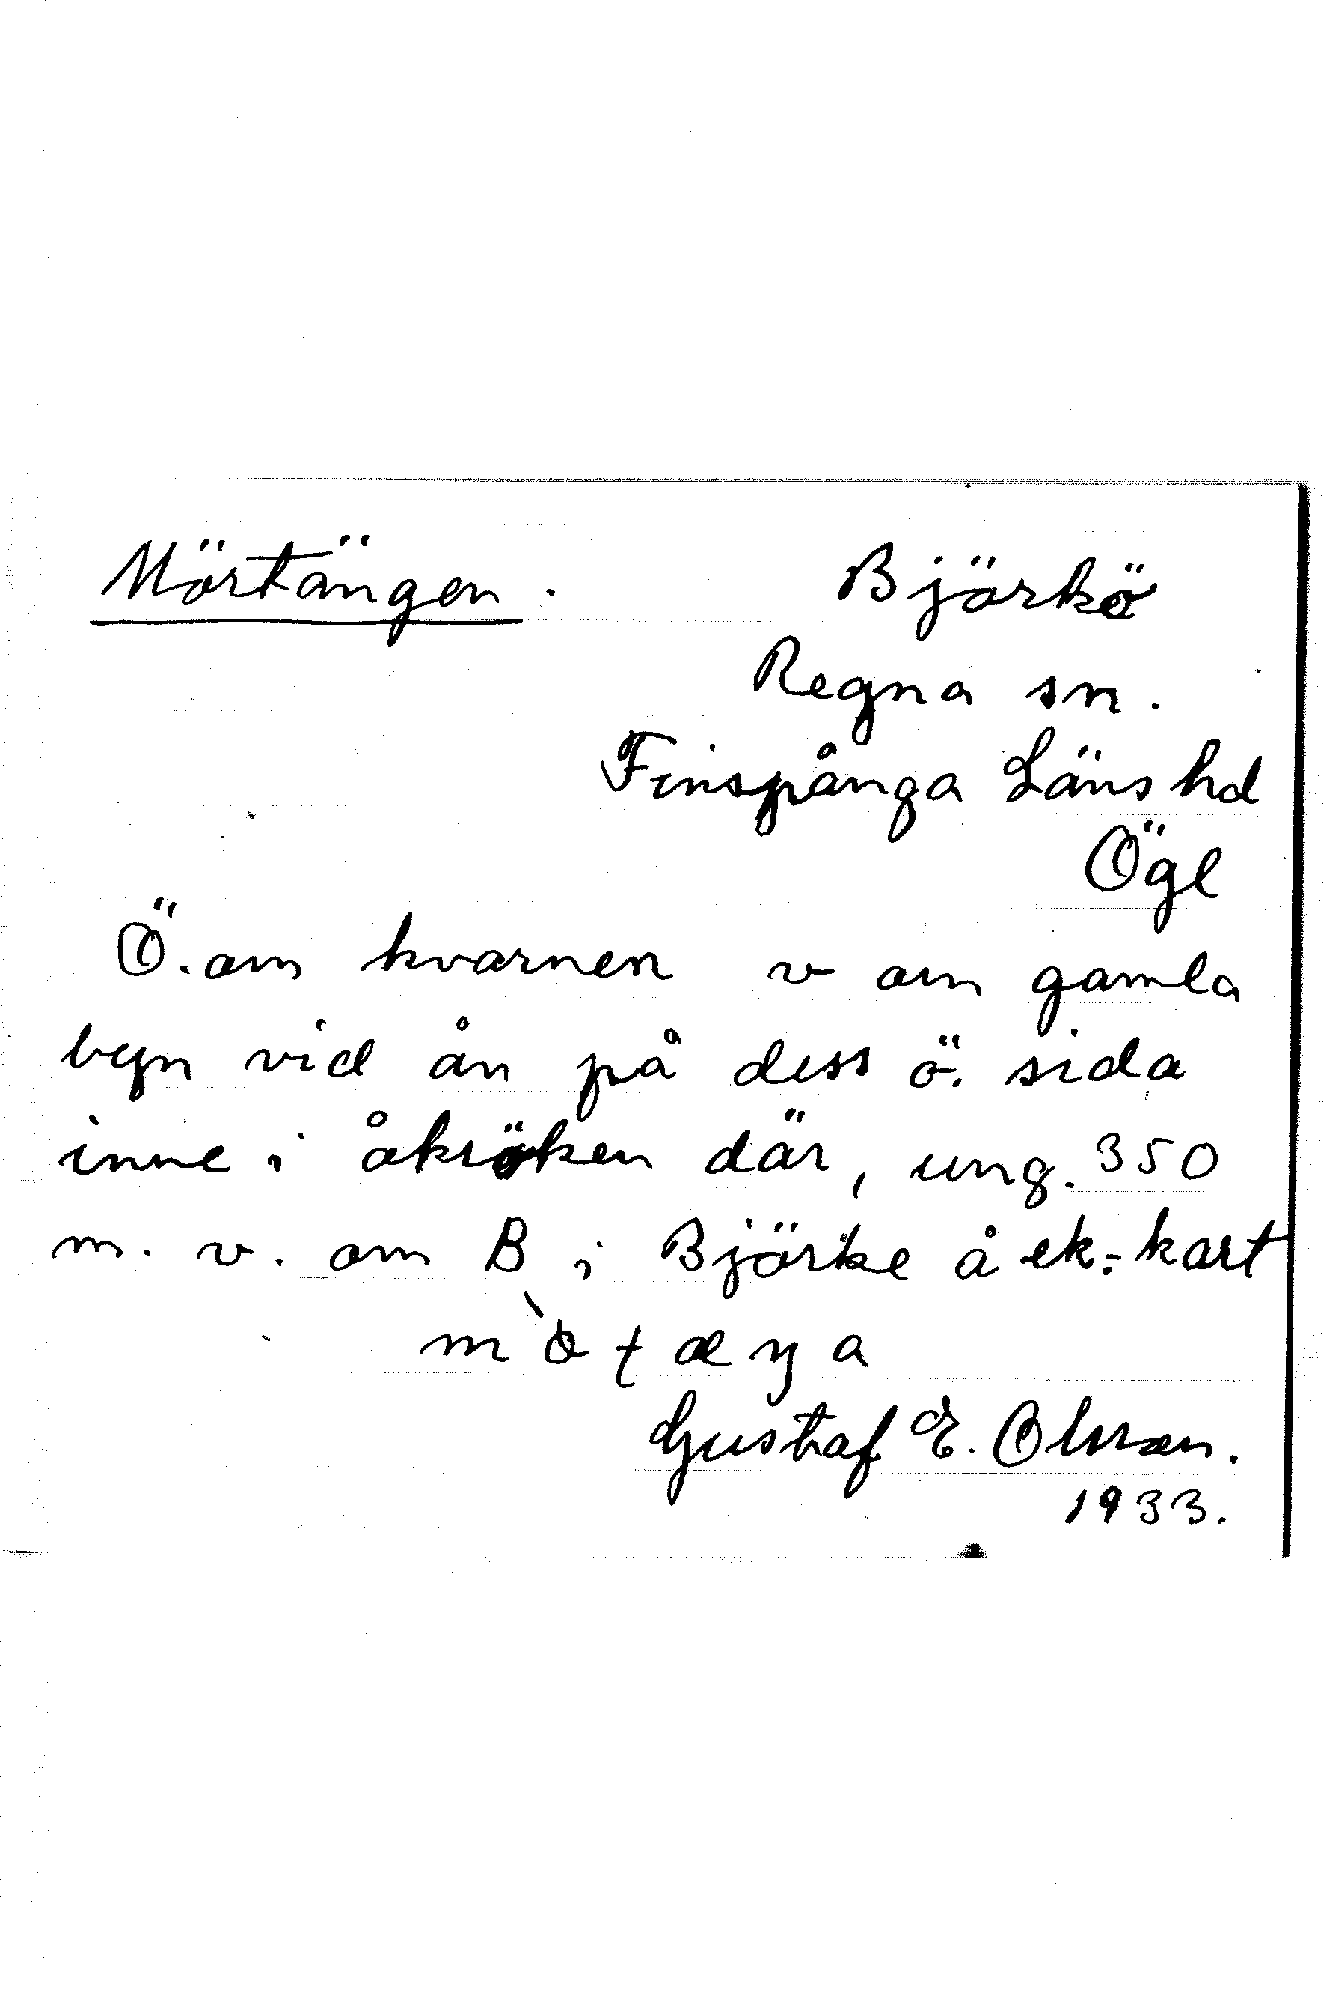 Mörtängen.
Björkö
Regna sn.
Finspånga Läns hd
Ögl
Ö. om kvarnen v om gamla
byn vid ån på dess ö. sida
inne i åkröken där, ung. 350
m. v. om B i Björke å ek.-kart
Gustaf E. Olsson.
1933.